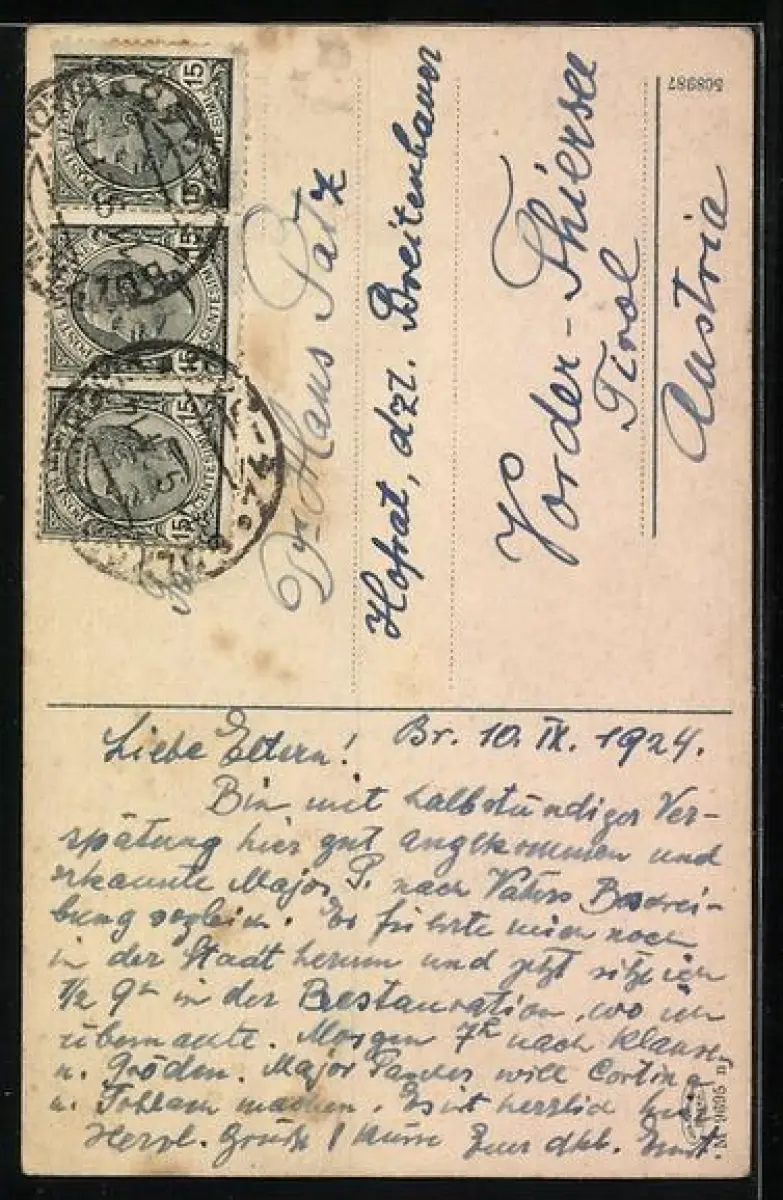 508987
Dr. Hans Patz
Hofrat, dzt. Breitenbauer
Vorder-Thiersee
Tirol
Austria
15
15
15
Liebe Eltern! Br. 10. IX. 1924.
Bin mit halbstündiger Ver-
spätung hier gut angekommen und
erkannte Major P. nach Vaters Beschrei-
bung sogleich. Er führte mich noch
in der Stadt herum und jetzt sitze ich
1/2 9h in der Restauration, wo ich
übernachte. Morgen 7h nach Klausen
u. Gröden. Major will Cortina
u. Toblach machen. Es ist herrlich
Herzl. Grüße Euer dkb.